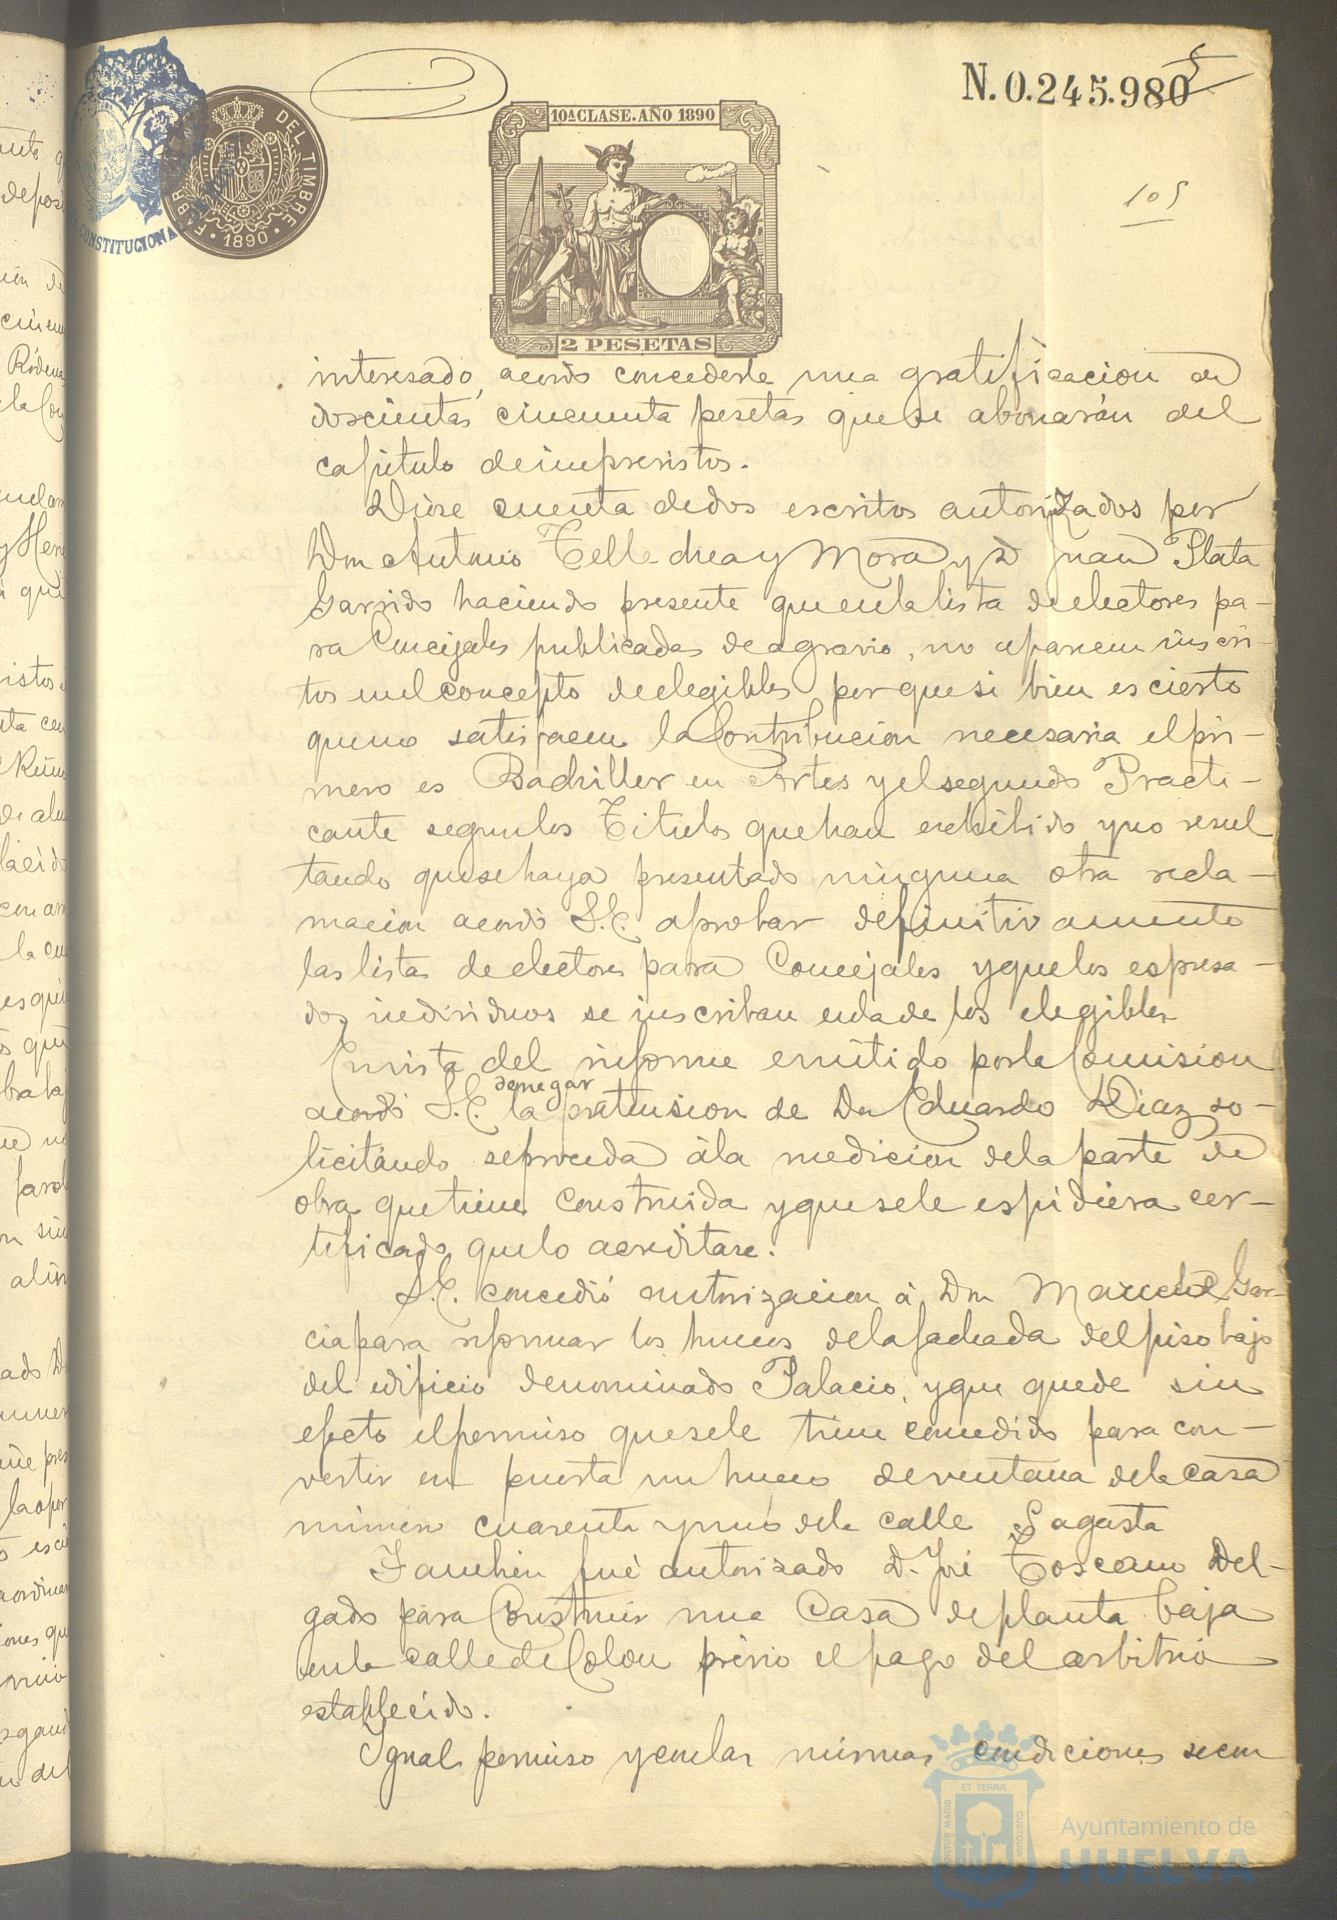 N.0.245.980
5
10ª CLASE. AÑO 1890
FABR DEL TIMBRE
· 1890 ·
CONSTITUCIONAL
105
2 PESETAS
interesado, acordó concederle una gratificacion de
doscientas cincuenta pesetas que se abonarán del
capitulo de imprevistos.
Diose cuenta de dos escritos autorizados por
Don Antonio Tellechea y Mora y D Juan Plata
Garrido haciendo presente que en la lista de electores pa-
ra Concejales publicadas de agravio, no aparecen inscri-
tos en el concepto de elegibles por que si bien es cierto
que no satisfacen la Contribucion necesaria el pri-
mero es Bachiller en Artes y el segundo Practi-
cante segun los Titulos que han exhibido y no resul
tando que se haya presentado ninguna otra recla-
macion acordó S.E. aprobar definitivamente
las listas de electores para Concejales y que los espresa-
dos individuos se inscriban en la de los elegibles
En vista del informe emitido por la Comision
acordó S.E. denegar la pretension de Don Eduardo Diaz so-
licitando se proceda á la medicion de la parte de
obra que tiene construida y que se le espidiera cer-
tificado que lo acreditase.
S.E. concedió autorizacion á Don Marcelo Gar-
cia para reformar los huecos de la fachada del piso bajo
del edificio denominado Palacio, y que quede sin
efecto el permiso que se le tiene concedido para con-
vertir en puerta un hueco de ventana de la casa
número cuarenta y uno de la calle Sagasta
Tambien fué autorizado D. José Toscano Del-
gado para Construir una Casa de planta baja
en la calle de Colon prévio el pago del arbitrio
establecido.
Igual permiso y con las mismas condiciones se con
ET TERRÆ
PORTUS MARIS
CUSTODIA
Ayuntamiento de
HUELVA